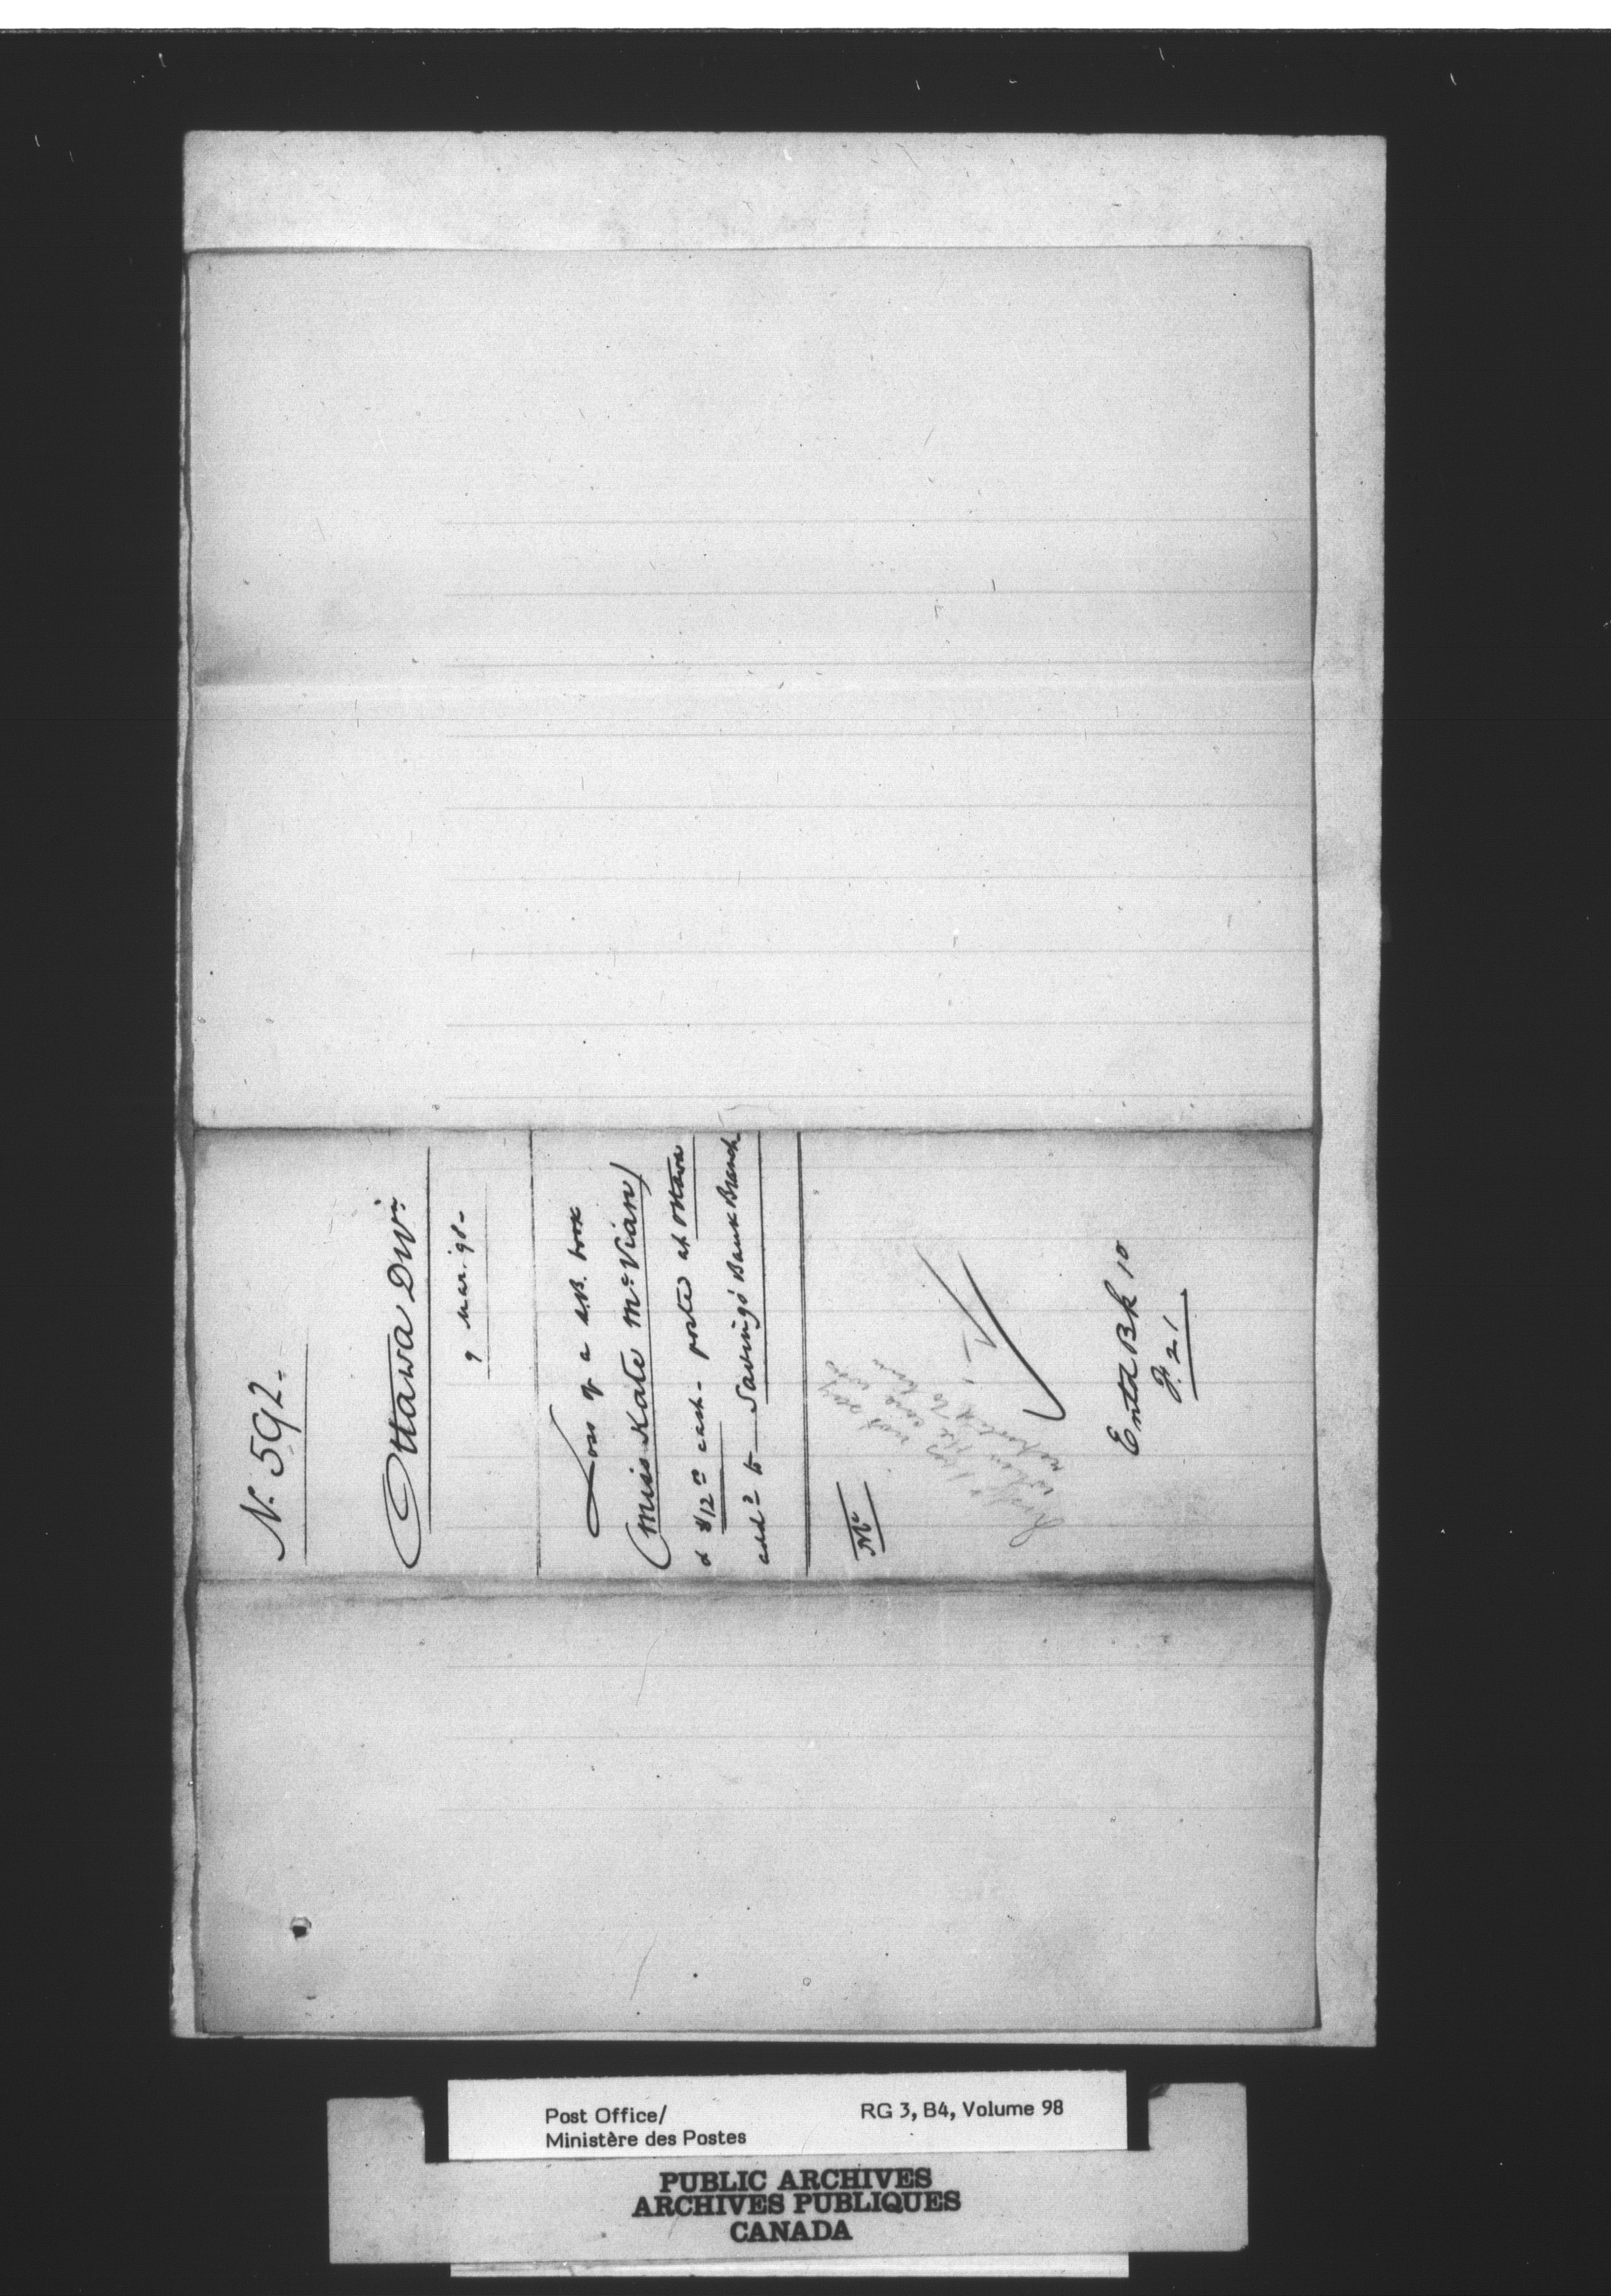 No. 592.
Ottawa Divn.
9 Mar. 98.
Loss of a S.B. book
(Miss Kate McVian)
& $12 00 cash - posted at Ottawa
add d to Savings Bank Branch
not say
when the
reported to him
Entd Bk 10
F. 21
Post Office/
Ministère des Postes
RG 3, B4, Volume 98
PUBLIC ARCHIVES
ARCHIVES PUBLIQUES
CANADA